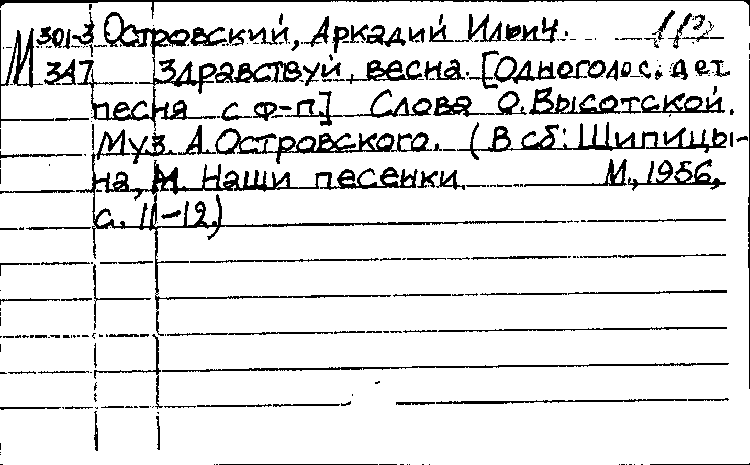 М 301-3 Островский, Аркадий Ильич.
347 Здравствуй, весна. [Одноголос. дет.
песня с ф-п.] Слова О. Высотской.
Муз. А. Островского. (В сб: Шипицы-
на, М. Наши песенки. М., 1956,
с. 11-12.)